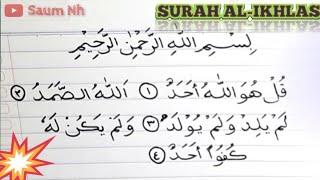 Saum Nh
SURAH AL-IKHLAS
بِسْمِ اللّٰهِ الرَّحْمٰنِ الرَّحِيْمِ
قُلْ هُوَ اللّٰهُ اَحَدٌ ١ اَللّٰهُ الصَّمَدُ ٢
لَمْ يَلِدْ وَلَمْ يُوْلَدْ ٣ وَلَمْ يَكُنْ لَهٗ
كُفُوًا اَحَدٌ ٤